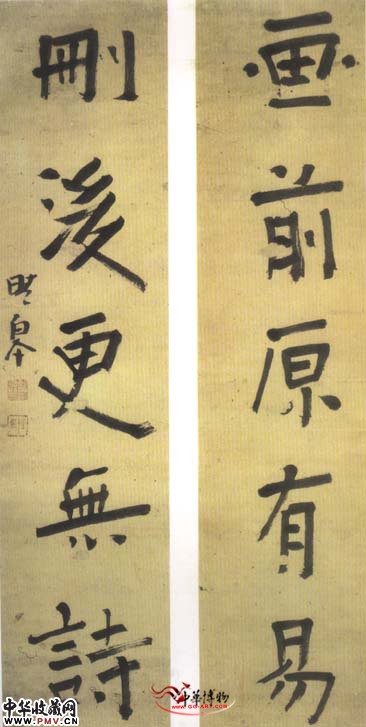 画前原有易
刪後更無詩
中华博物
WWW.GG-ART.COM
中华收藏网
WWW.PMV.CN